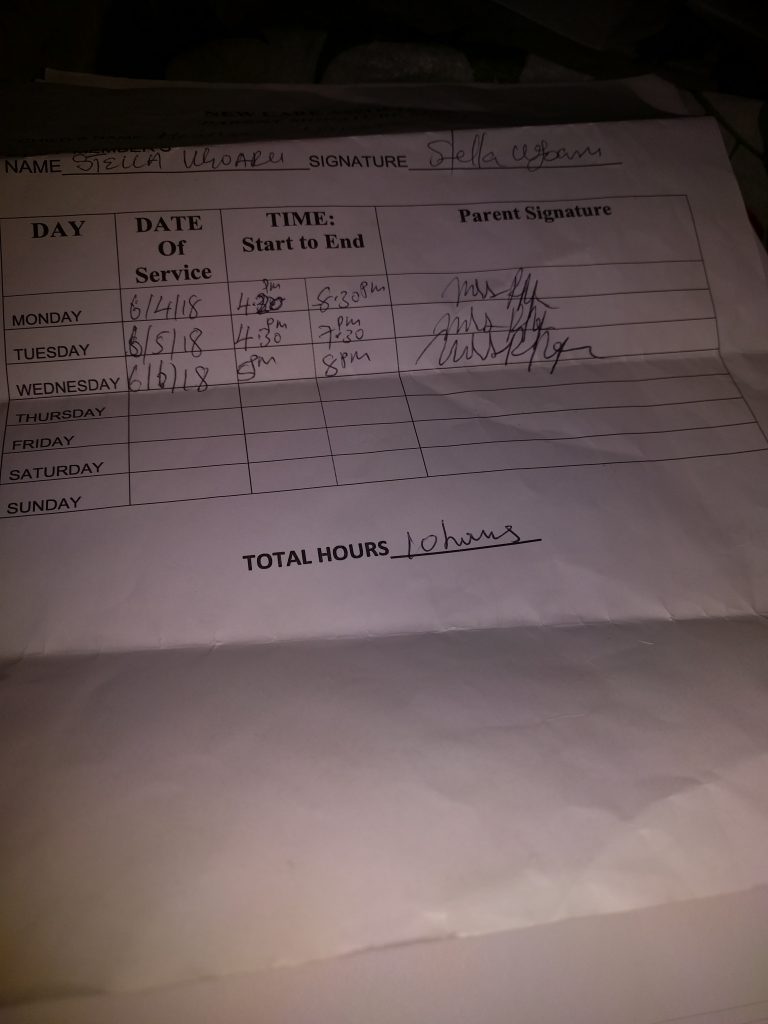 NEW CARE
NAME STELLA SIGNATURE Stella
DAY DATE Of Service TIME: Start to End Parent Signature
MONDAY 6/4/18 8:30pm
TUESDAY 6/5/18 4:30pm 7:30pm
WEDNESDAY 6/6/18 5pm 8pm
THURSDAY
FRIDAY
SATURDAY
SUNDAY
TOTAL HOURS 10hours